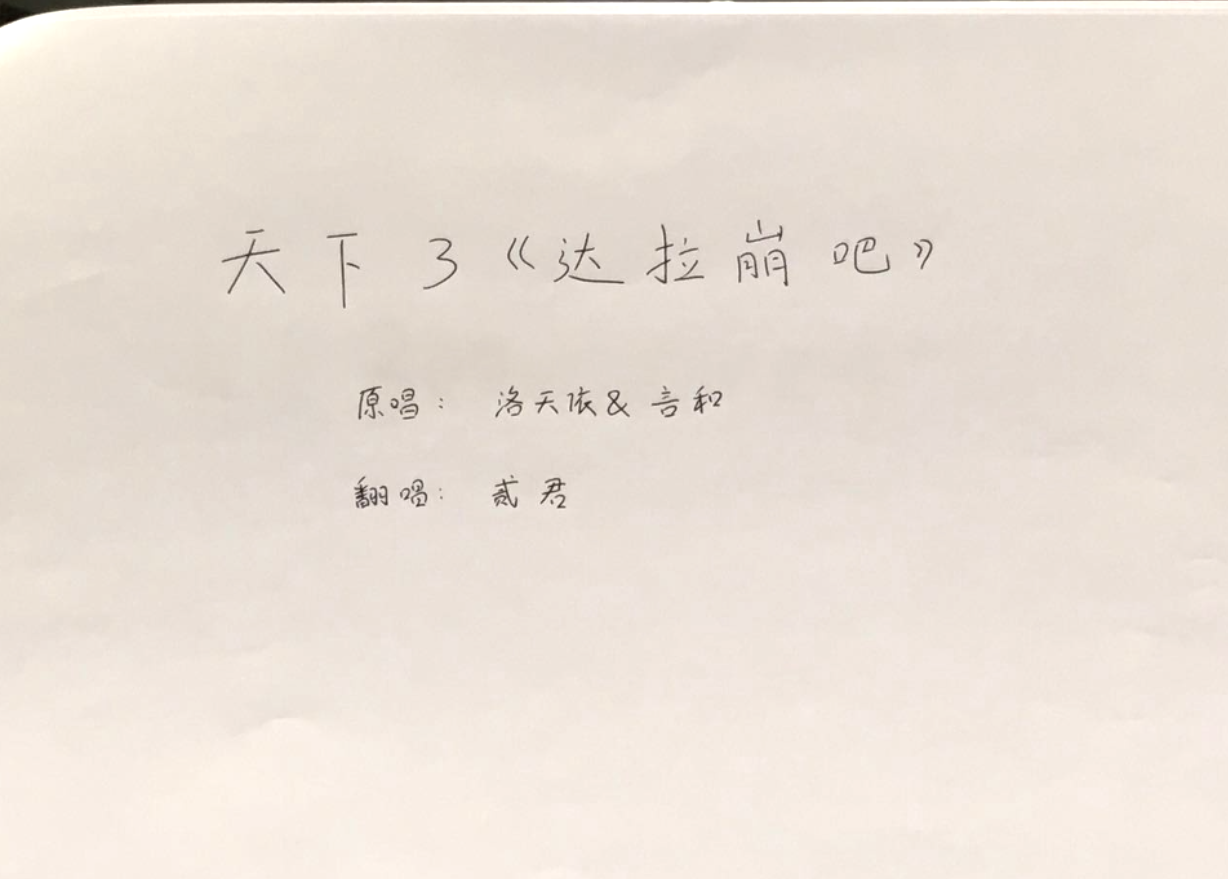 天下3《达拉崩吧》
原唱： 洛天依& 言和
翻唱： 贰君